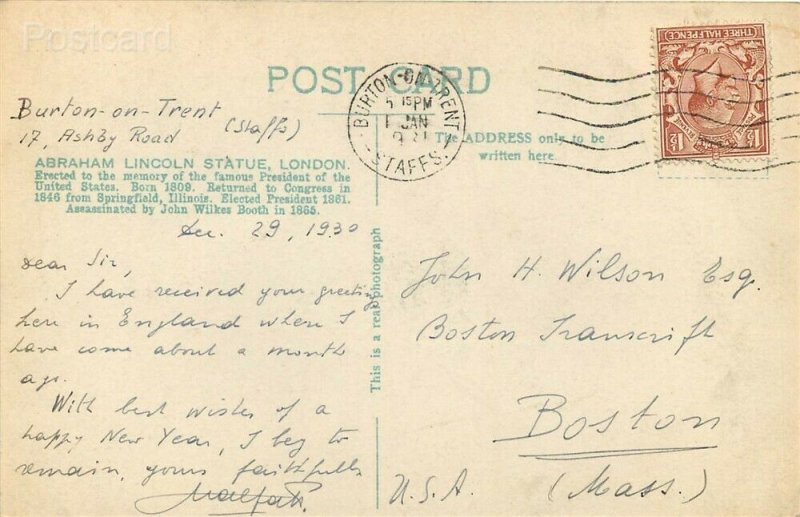 Postcard
POST CARD
Burton-on-Trent
(Staffs)
17, Ashby Road
ABRAHAM LINCOLN STATUE, LONDON.
Erected to the memory of the famous President of the
United States. Born 1809. Returned to Congress in
1846 from Springfield, Illinois. Elected President 1861.
Assassinated by John Wilkes Booth in 1865.
Dec. 29, 1930
Dear Sir,
I have received your greeting
here in England where I
have come about a month
ago.
With best wishes of a
happy New Year, I beg to
remain, yours faithfully
This is a real photograph
BURTON-ON-TRENT
5 15 PM
1 JAN
STAFFS.
THREE HALFPENCE
1½
1½
The ADDRESS only to be
written here.
John H. Wilson Esq.
Boston Transcript
Boston
(Mass.)
U.S.A.